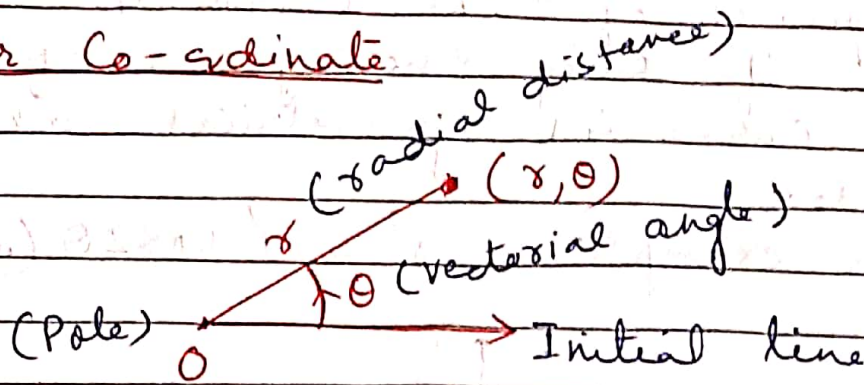 r Co-ordinate
(radial distance)
(r, θ)
r
θ (vectorial angle)
(Pole)
O
Initial line